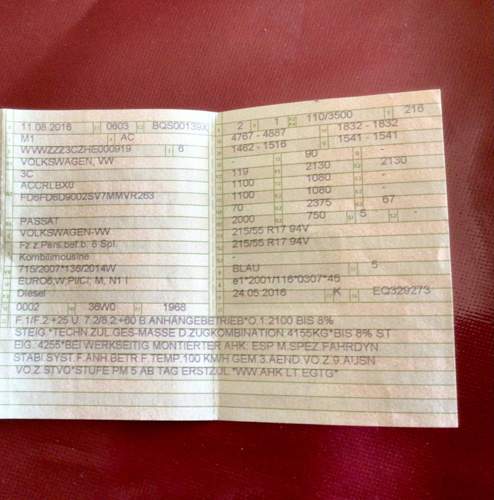 11.08.2016 0603 BQS00139X
M1 AC
WVWZZZ3CZHE000919 6
VOLKSWAGEN, VW
3C
ACCRLBX0
FD6FD6D9002SV7MMVR263
PASSAT
VOLKSWAGEN-VW
Fz.z.Pers.bef.b. 8 Spl.
Kombilimousine
715/2007*136/2014W
EURO6;W;PI/CI; M, N1 I
Diesel
0002 36W0 1968
2 1 110/3500 216
4767 - 4887 1832 - 1832
1462 - 1516 1541 - 1541
- 90 -
119 2130 2130
1100 1080 -
1100 1080 -
70 2375 67
2000 750 5 -
215/55 R17 94V
215/55 R17 94V
-
BLAU 5
e1*2001/116*0307*45
24.05.2016 K EQ329273
F.1/F.2:+25 U. 7.2/8.2:+60 B.ANHÄNGEBETRIEB*O.1:2100 BIS 8%
STEIG.*TECHN.ZUL.GES-MASSE D.ZUGKOMBINATION 4155KG*BIS 8% ST
EIG.:4255*BEI WERKSEITIG MONTIERTER AHK: ESP M.SPEZ.FAHRDYN
STABI SYST.F.ANH.BETR.F.TEMP.100 KM/H GEM.3.AEND.VO.Z.9.AUSN
VO.Z.STVO*STUFE PM 5 AB TAG ERSTZUL.*WW.AHK LT EGTG*